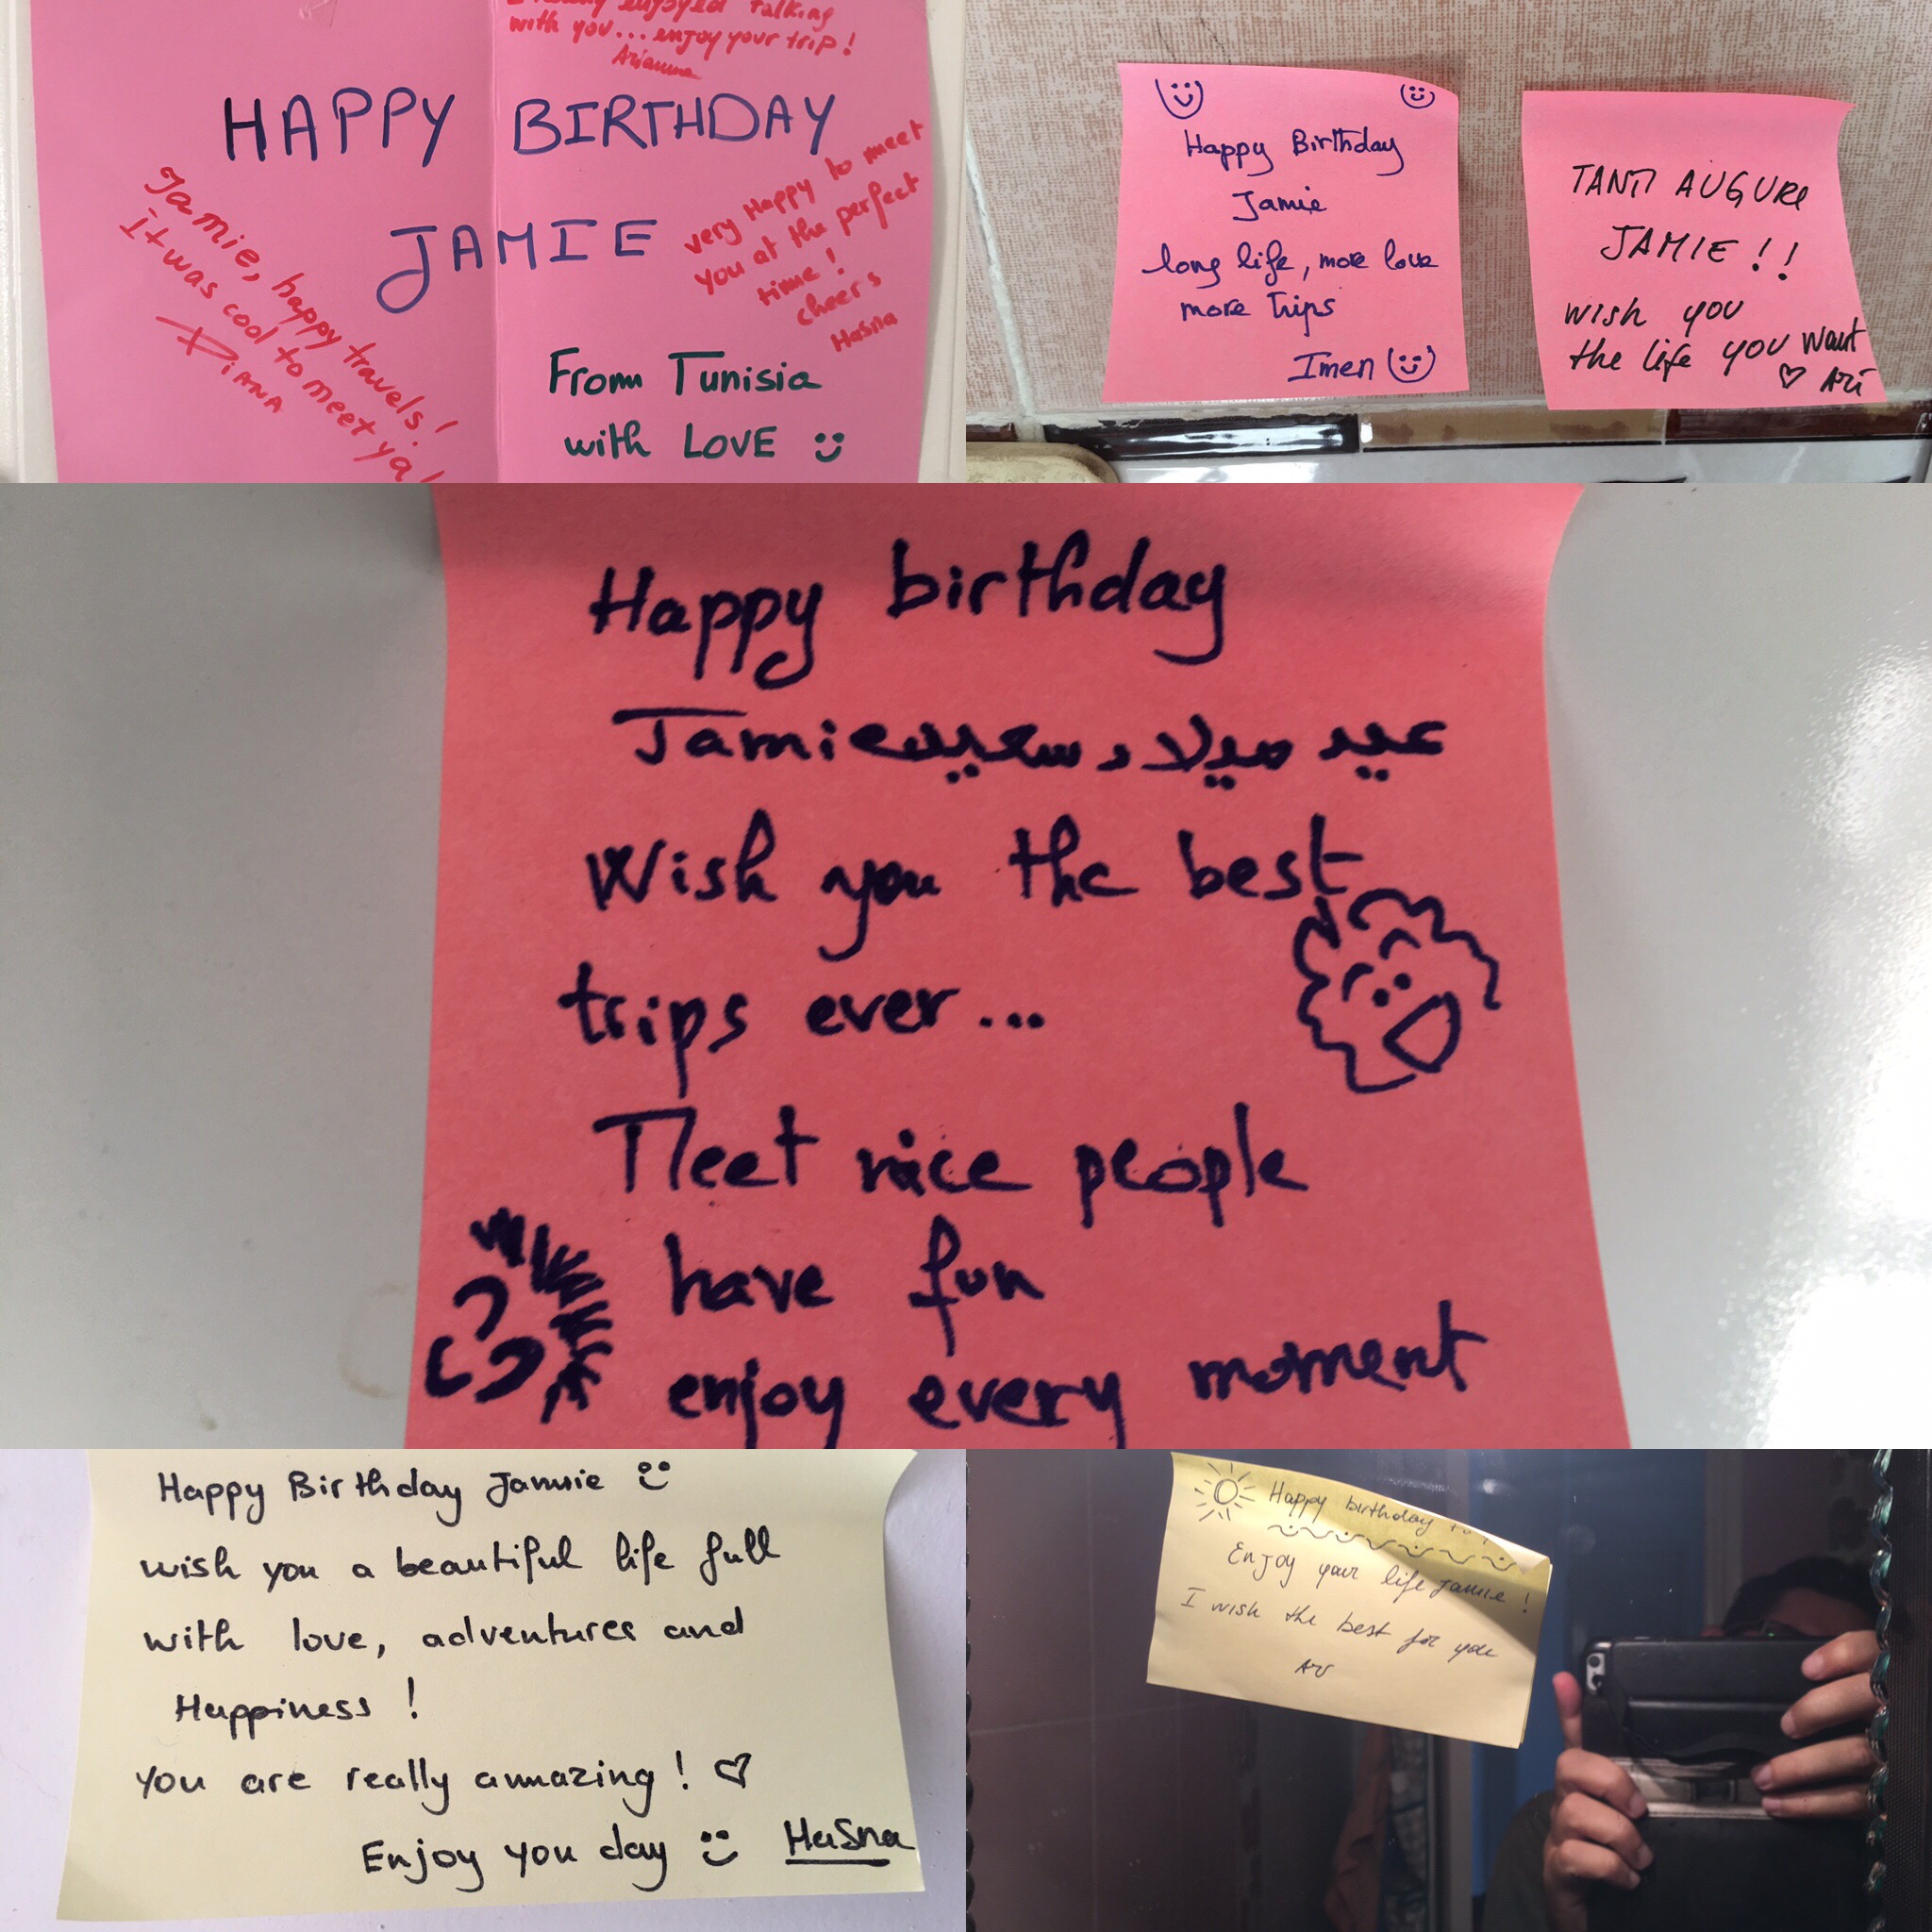 enjoyed talking
with you... enjoy your trip!
Arianna
HAPPY BIRTHDAY
JAMIE
Jamie, happy travels!
It was cool to meet ya!
DIANA
very Happy to meet
you at the perfect
time!
cheers
Hasna
From Tunisia
with LOVE
Happy Birthday
Jamie
long life, more love
more trips
Imen
TANTI AUGURI
JAMIE !!
wish you
the life you want
♡ Ari
Happy birthday
Jamie عيد ميلاد سعيد
Wish you the best
trips ever...
Meet nice people
have fun
enjoy every moment
Happy Birthday Jamie
wish you a beautiful life full
with love, adventures and
Happiness !
you are really amazing ! ♡
Enjoy you day Hasna
Happy birthday to
Enjoy your life Jamie !
I wish the best for you